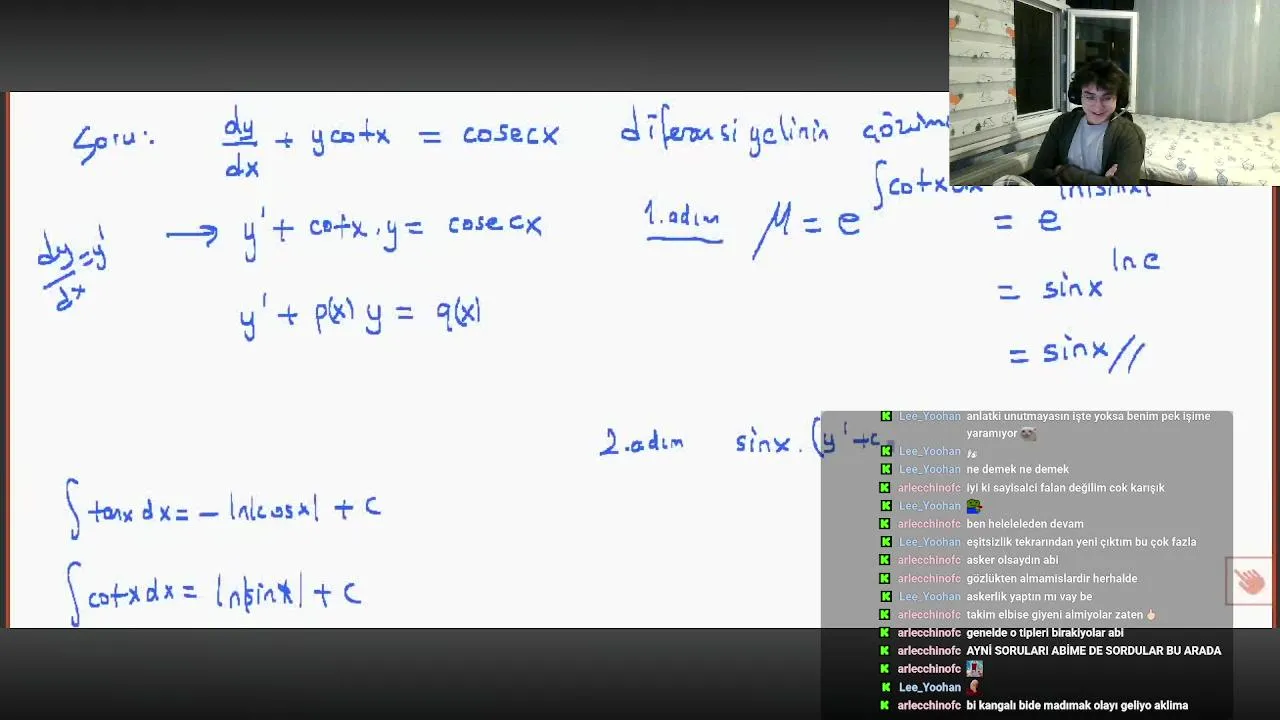 Soru: dy/dx + ycotx = cosecx diferansiyelinin
dy/dx = y' → y' + cotx.y = cosecx
y' + p(x) y = q(x)
1.adım μ = e^∫cotxdx = e^ln|sinx|
= sinx^lne
= sinx//
2.adım sinx.(y'+c
∫tanx dx = - ln|cosx| + c
∫cotx dx = ln|sinx| + c
Lee_Yoohan anlatki unutmayasın işte yoksa benim pek işime
yaramıyor
Lee_Yoohan
Lee_Yoohan ne demek ne demek
arlecchinofc iyi ki sayisalci falan değilim cok karışık
Lee_Yoohan
arlecchinofc ben heleleleden devam
Lee_Yoohan eşitsizlik tekrarından yeni çıktım bu çok fazla
arlecchinofc asker olsaydın abi
arlecchinofc gözlükten almamislardir herhalde
Lee_Yoohan askerlik yaptın mı vay be
arlecchinofc takim elbise giyeni almiyolar zaten
arlecchinofc genelde o tipleri birakiyolar abi
arlecchinofc AYNİ SORULARI ABİME DE SORDULAR BU ARADA
arlecchinofc
Lee_Yoohan
arlecchinofc bi kangalı bide madımak olayı geliyo aklima